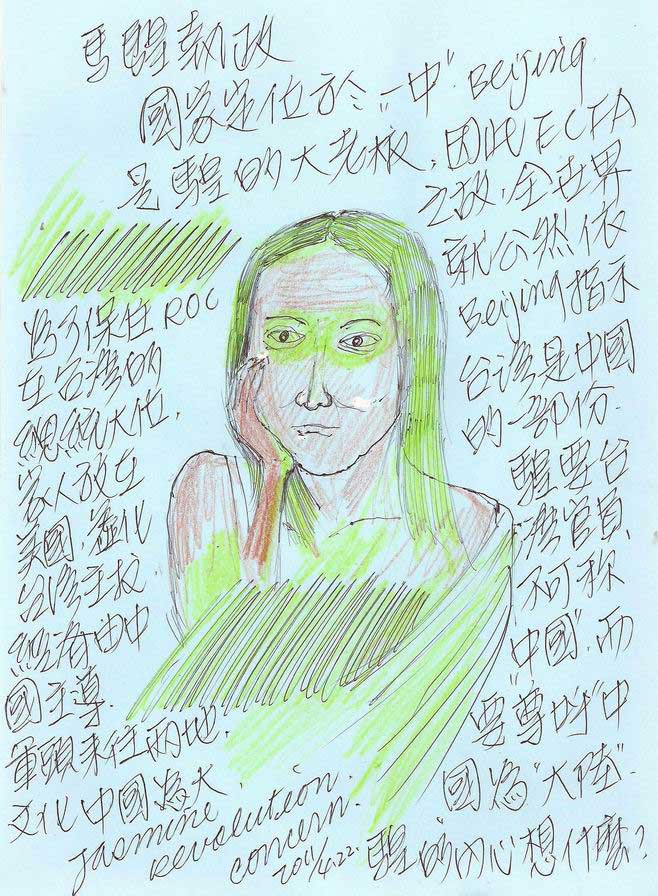 馬騜執政
國家定位於"一中". Beijing
是騜的大老板, 因此ECFA
之故, 全世界
就公然依
Beijing指示
台灣是中國
的一部份.
騜要台
灣官員
不可称
"中國", 而
要尊呼"中
國為"大陸".
為了保住ROC
在台灣的
總統大位,
家人放在
美國, 虛化
台灣主权
經濟由中
國主導.
軍頭來往兩地,
文化中國為大
Jasmine
Revolution
concern.
2011/4.22.
騜的內心想什麼?